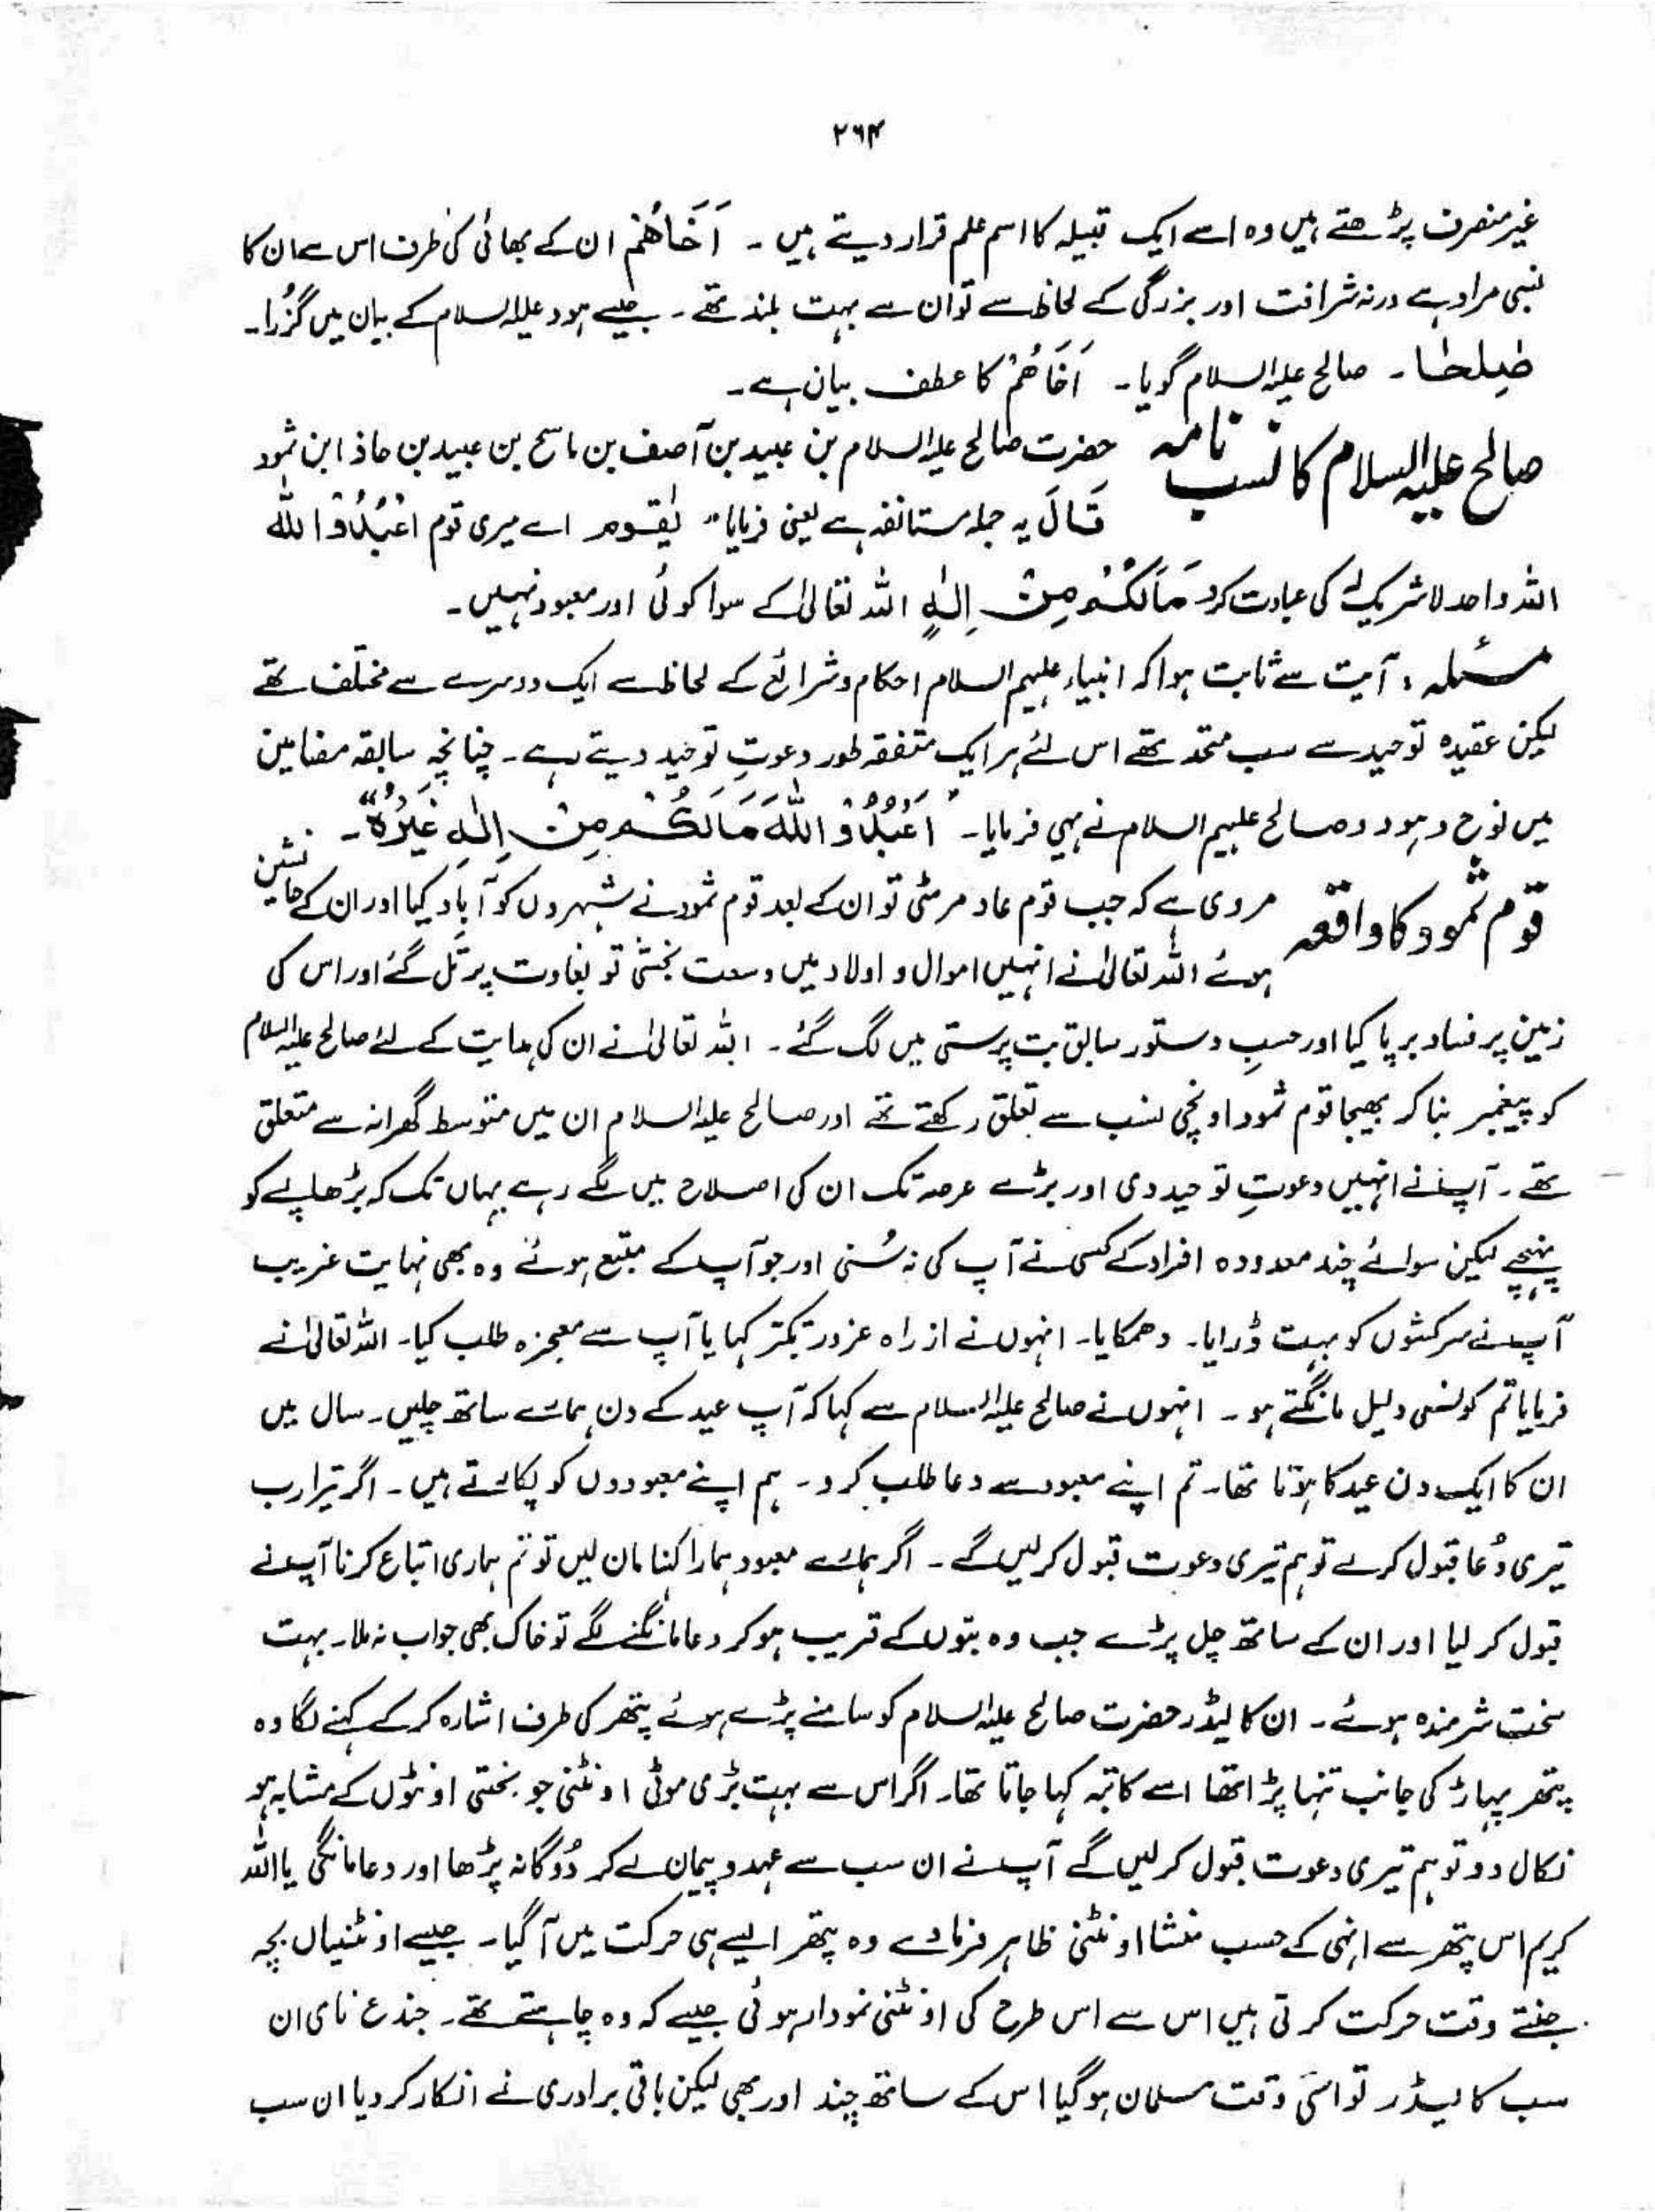 ۲۶۴
غیر منصرف پڑھتے ہیں وہ اسے ایک قبیلہ کا اسم علم قرار دیتے ہیں ۔ اَخَاهُمْ ان کے بھائی کی طرف اس سے ان کا
نسبی مراد ہے ورنہ شرافت اور بزرگی کے لحاظ سے تو ان سے بہت بلند تھے ۔ جیسے ہود علیہ السلام کے بیان میں گزُرا۔
صٰلحًا ۔ صالح علیہ السلام گویا ۔ اَخَاهُمْ کا عطف بیان ہے ۔
صالح علیہ السلام کا نسب نامہ حضرت صالح علیہ السلام بن عبید بن آصف بن ماسح بن عبید بن حاذ ابن ثمود
قَالَ یہ جملہ مستانفہ ہے یعنی فرمایا " یٰقوم اے میری قوم اعْبُدُوا اللّٰهَ
اللہ واحد لاشریک لہٗ کی عبادت کرو مَالَكُمْ مِنْ اِلٰهٍ اللہ تعالیٰ کے سوا کوئی اور معبود نہیں ۔
مسئلہ ، آیت سے ثابت ہوا کہ انبیاء علیہم السلام احکام و شرائع کے لحاظ سے ایک دوسرے سے مختلف تھے
لیکن عقیدہ توحید سے سب متحد تھے اس لئے ہر ایک متفقہ طور دعوتِ توحید دیتے رہے ۔ چنانچہ سابقہ مضامین
میں نوح و ہود و صالح علیہم السلام نے یہی فرمایا ۔ " اعْبُدُوا اللّٰهَ مَالَكُمْ مِنْ اِلٰهٍ غَیْرُهٗ " ۔
قوم ثمود کا واقعہ مروی ہے کہ جب قوم عاد مرمٹی تو ان کے بعد قوم ثمود نے شہروں کو آباد کیا اور ان کے جانشین
ہوئے اللہ تعالیٰ نے انہیں اموال و اولاد میں وسعت بخشی تو بغاوت پر تُل گئے اور اس کی
زمین پر فساد برپا کیا اور حسبِ دستور سابق بت پرستی میں لگ گئے ۔ اللہ تعالیٰ نے ان کی ہدایت کے لئے صالح علیہ السلام
کو پیغمبر بنا کر بھیجا قوم ثمود اونچی نسب سے تعلق رکھتے تھے اور صالح علیہ السلام ان میں متوسط گھرانہ سے متعلق
تھے ۔ آپ نے انہیں دعوتِ توحید دی اور بڑے عرصہ تک ان کی اصلاح میں لگے رہے یہاں تک کہ بڑھاپے کو
پہنچے لیکن سوائے چند معدودہ افراد کے کسی نے آپ کی نہ سُنی اور جو آپ کے متبع ہوئے وہ بھی نہایت غریب
آپ نے سرکشوں کو بہت ڈرایا ۔ دھمکایا ۔ انہوں نے از راہ غرور تکبر کہا یا آپ سے معجزہ طلب کیا ۔ اللہ تعالیٰ نے
فرمایا تم کونسی دلیل مانگتے ہو ۔ انہوں نے صالح علیہ السلام سے کہا کہ آپ عید کے دن ہمارے ساتھ چلیں ۔ سال میں
ان کا ایک دن عید کا ہوتا تھا ۔ تم اپنے معبود سے دعا طلب کرو ۔ ہم اپنے معبودوں کو پکارتے ہیں ۔ اگر تیرا رب
تیری دُعا قبول کرے تو ہم تیری دعوت قبول کرلیں گے ۔ اگر ہمارے معبود ہمارا کہنا مان لیں تو تم ہماری اتباع کرنا آپ نے
قبول کر لیا اور ان کے ساتھ چل پڑے جب وہ بتوں کے قریب ہو کر دعا مانگنے لگے تو خاک بھی جواب نہ ملا ۔ بہت
سخت شرمندہ ہوئے ۔ ان کا لیڈر حضرت صالح علیہ السلام کو سامنے پڑے ہوئے پتھر کی طرف اشارہ کر کے کہنے لگا وہ
پتھر پہاڑ کی جانب تنہا پڑا تھا اسے کاتبہ کہا جاتا تھا ۔ اگر اس سے بہت بڑی موٹی اونٹنی جو بختی اونٹوں کے مشابہ ہو
نکال دو تو ہم تیری دعوت قبول کرلیں گے آپ نے ان سب سے عہد و پیمان لے کر دُوگانہ پڑھا اور دعا مانگی یا اللہ
کریم اس پتھر سے انہی کے حسب منشا اونٹنی ظاہر فرما دے وہ پتھر ایسے ہی حرکت میں آ گیا ۔ جیسے اونٹنیاں بچہ
جنتے وقت حرکت کرتی ہیں اس سے اس طرح کی اونٹنی نمودار ہوئی جیسے کہ وہ چاہتے تھے ۔ جندع نامی ان
سب کا لیڈر تو اسی وقت مسلمان ہو گیا اس کے ساتھ چند اور بھی لیکن باقی برادری نے انکار کر دیا ان سب